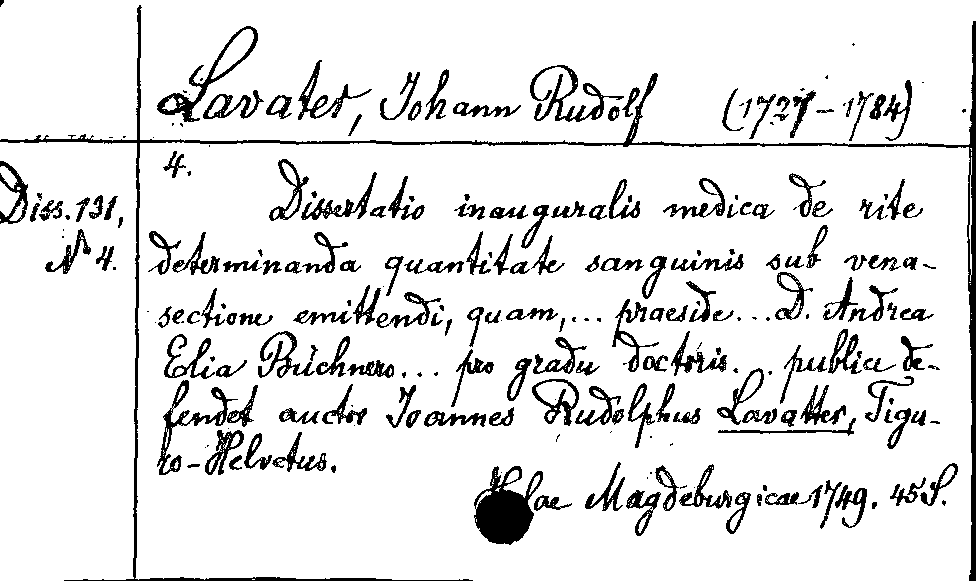 Lavater, Johann Rudolf (1727-1784)
Diss. 131,
No 4.
4.
Dissertatio inauguralis medica de rite
determinanda quantitate sanguinis sub vena-
sectione emittendi, quam,... praeside... D. Andrea
Elia Büchnero... pro gradu doctoris... publice de-
fendet auctor Joannes Rudolphus Lavatter, Tigu-
ro-Helvetus.
Magdeburgicae 1749. 45 S.